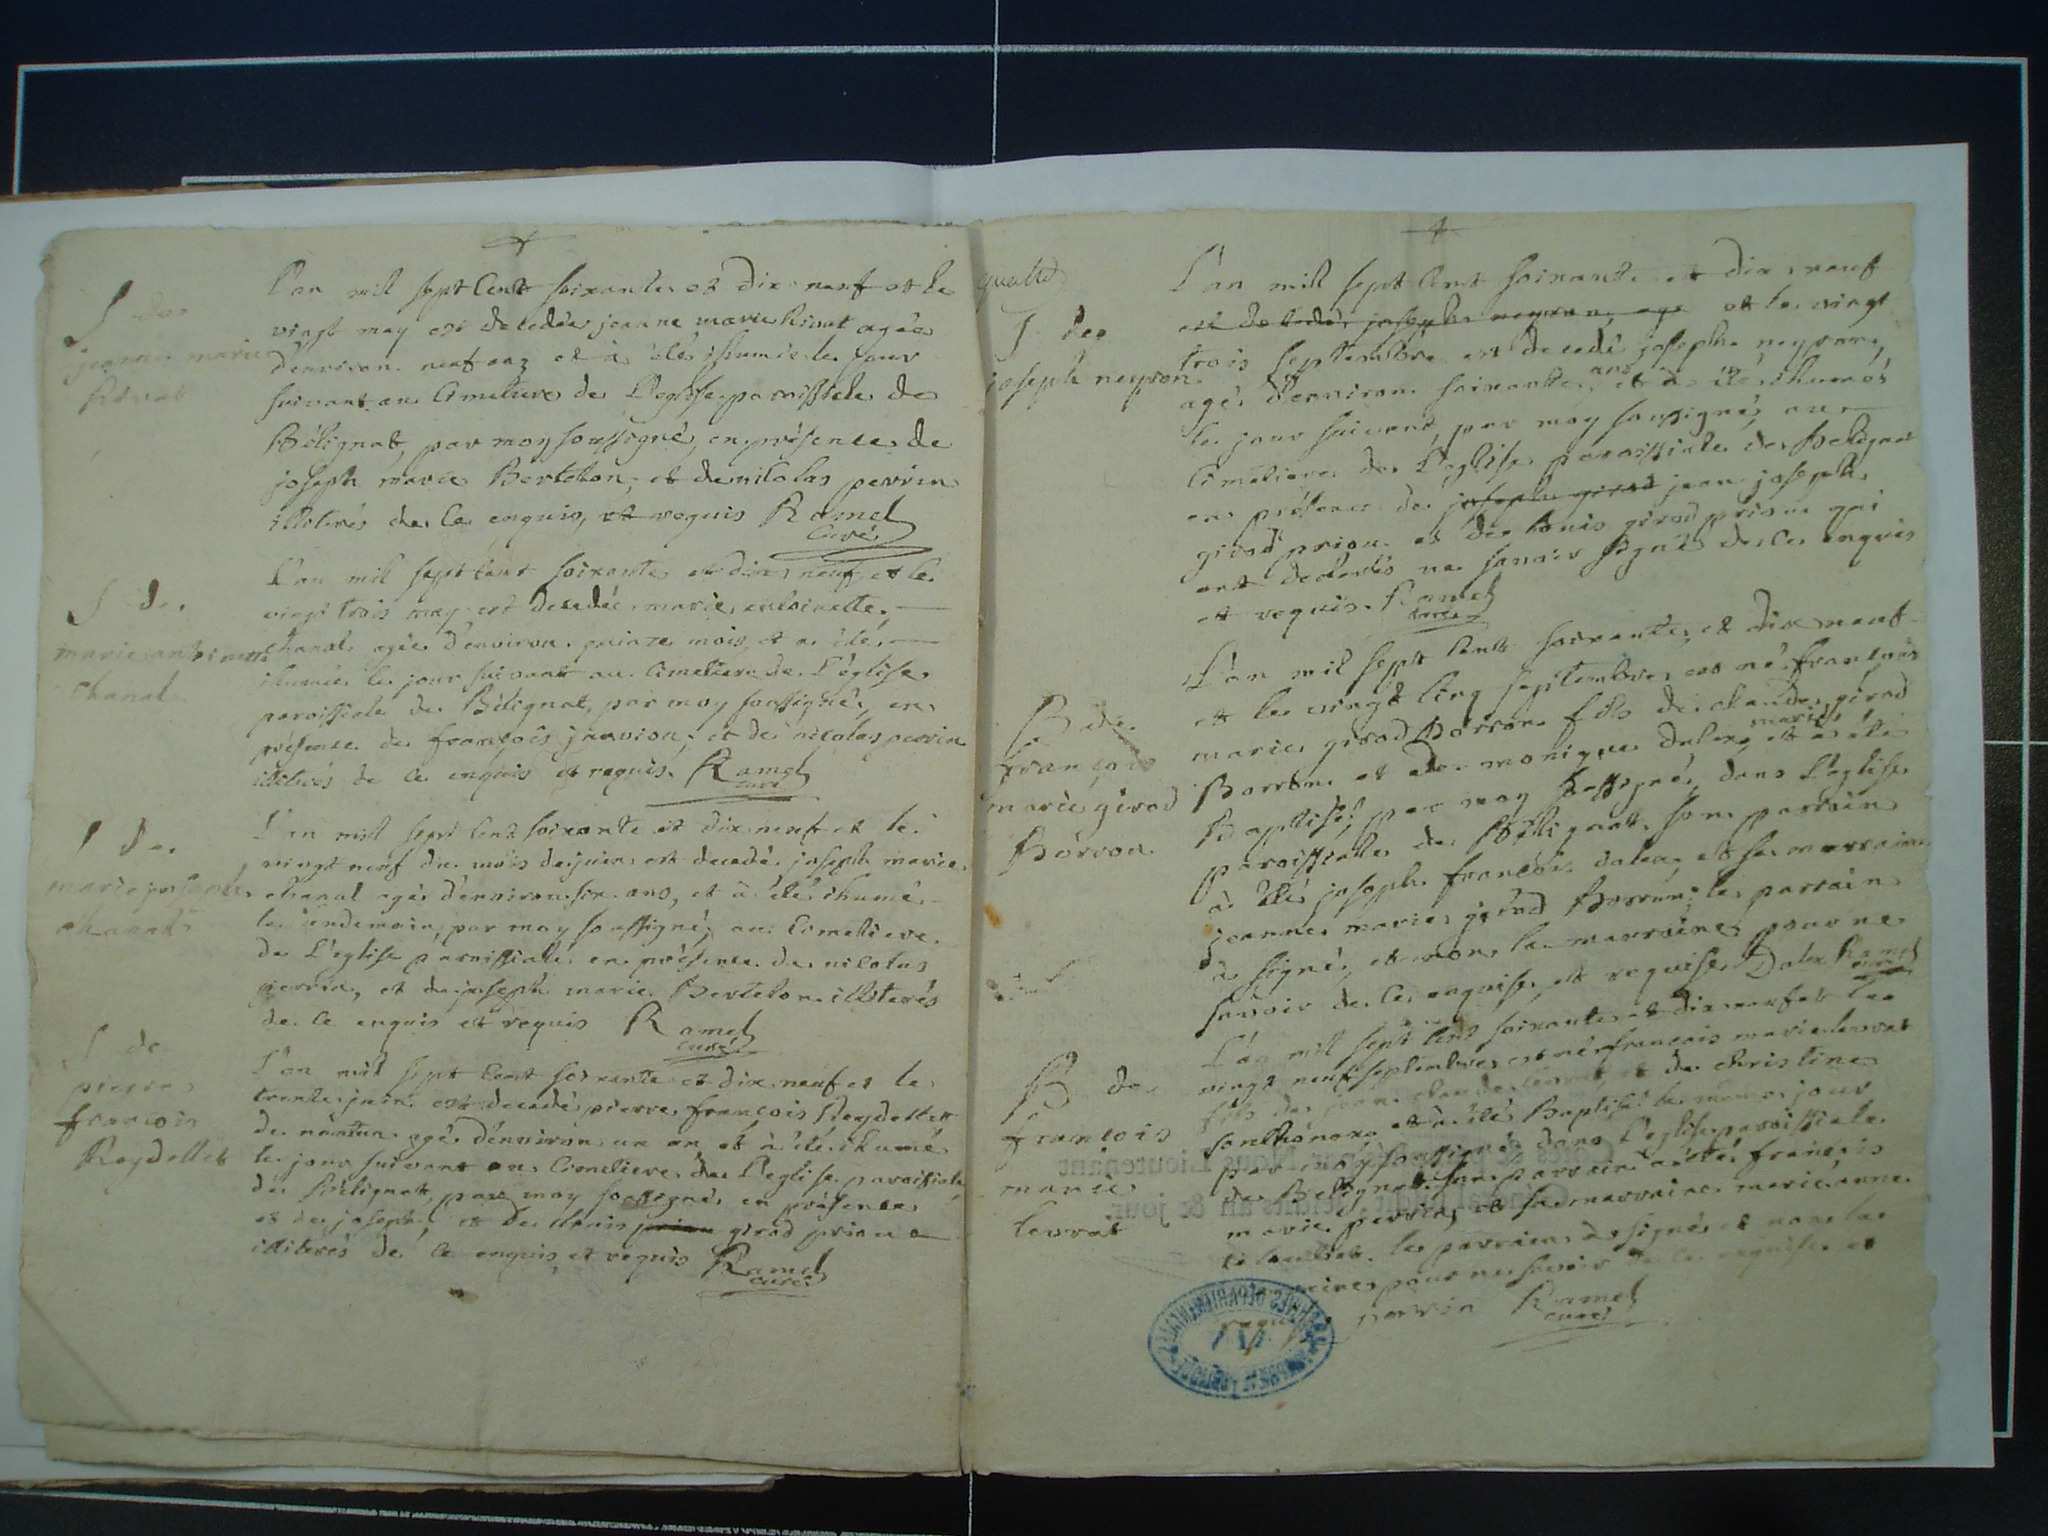 S de
jeanne marie
L'an mil sept cent soixante et dix neuf et le
vingt may est decedée jeanne marie agée
d'environ neuf ans et à été ihumée le jour
suivant au cimetiere de L'eglise paroissiale de
Bélignat, par moy soussigné, en présence de
joseph marie Berteton, et de nicolas perrin
illiterés de ce enquis, et requis Ramel
curé
S de
marie antoinette
chanal
L'an mil sept cent soixante et dix neuf et le
vingt trois may est decedée marie antoinette
chanal agée d'environ quinze mois, et a été
ihumée le jour suivant au cimetiere de L'église
paroissiale de Bélignat, par moy soussigné, en
présence de françois janvion, et de nicolas perrin
illiterés de ce enquis et requis. Ramel
curé
S de
marie joseph
chanal
L'an mil sept cent soixante et dix neuf et le
vingt neuf du mois de juin est decedé joseph marie
chanal agé d'environ six ans, et à été ihumé
le lendemain, par moy soussigné, au cimetiere
de L'eglise paroissiale en présence de nicolas
perrin, et de joseph marie Berteton illiterés
de ce enquis et requis Ramel
curé
S de
pierre
françois
Reydellet
L'an mil sept cent soixante et dix neuf et le
trente juin est decedé pierre françois Reydellet
de nantua agé d'environ un an et à été ihumé
le jour suivant au cimetiere de L'eglise paroissiale
de Bélignat, par moy soussigné en présence
et de joseph, et de Louis girod prion
illiterés de ce enquis, et requis Ramel
curé
S de
joseph neyron
L'an mil sept cent soixante et dix neuf
est decedé joseph neyron agé et le vingt
trois septembre est decedé joseph neyron,
agé d'environ soixante ans et à été ihumé
le jour suivant, par moy soussigné, au
cimetiere de L'eglise paroissiale de Beligniat
en présence de joseph girod jean joseph
girod prion et de Louis girod prion qui
ont declarés ne savoir signé de ce enquis
et requis. Ramel
curé
B de
françois
marie girod
Borron
L'an mil sept cent soixante et dix neuf
et le vingt cinq septembre est né françois
marie girod Borron fils de claude girod
Borron et de monique dalex mariés et à été
Baptisé, par moy soussigné, dans L'eglise
paroissialle de Bélignat, son parrain
à été joseph françois dalex et sa marraine
jeanne marie girod Borron; le parrain
à signé, et non la marraine pour ne
savoir de ce enquise et requise Dalex Ramel
curé
B de
françois
marie
levrat
L'an mil sept cent soixante et dix neuf et le
vingt neuf septembre est né françois marie levrat
fils de jean claude levrat, et de christine
et à été Baptisé le meme jour
par moy soussigné dans L'eglise paroissiale
de Bélignat son parrain à été françois
marie perrin et sa marraine marie anne
le parrain à signé et non la
marraine pour ne savoir de ce enquise et
requise perrin Ramel
curé